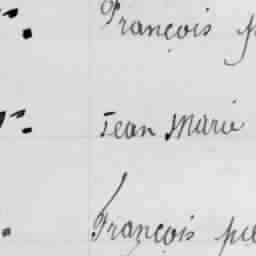 François
Jean Marie
François